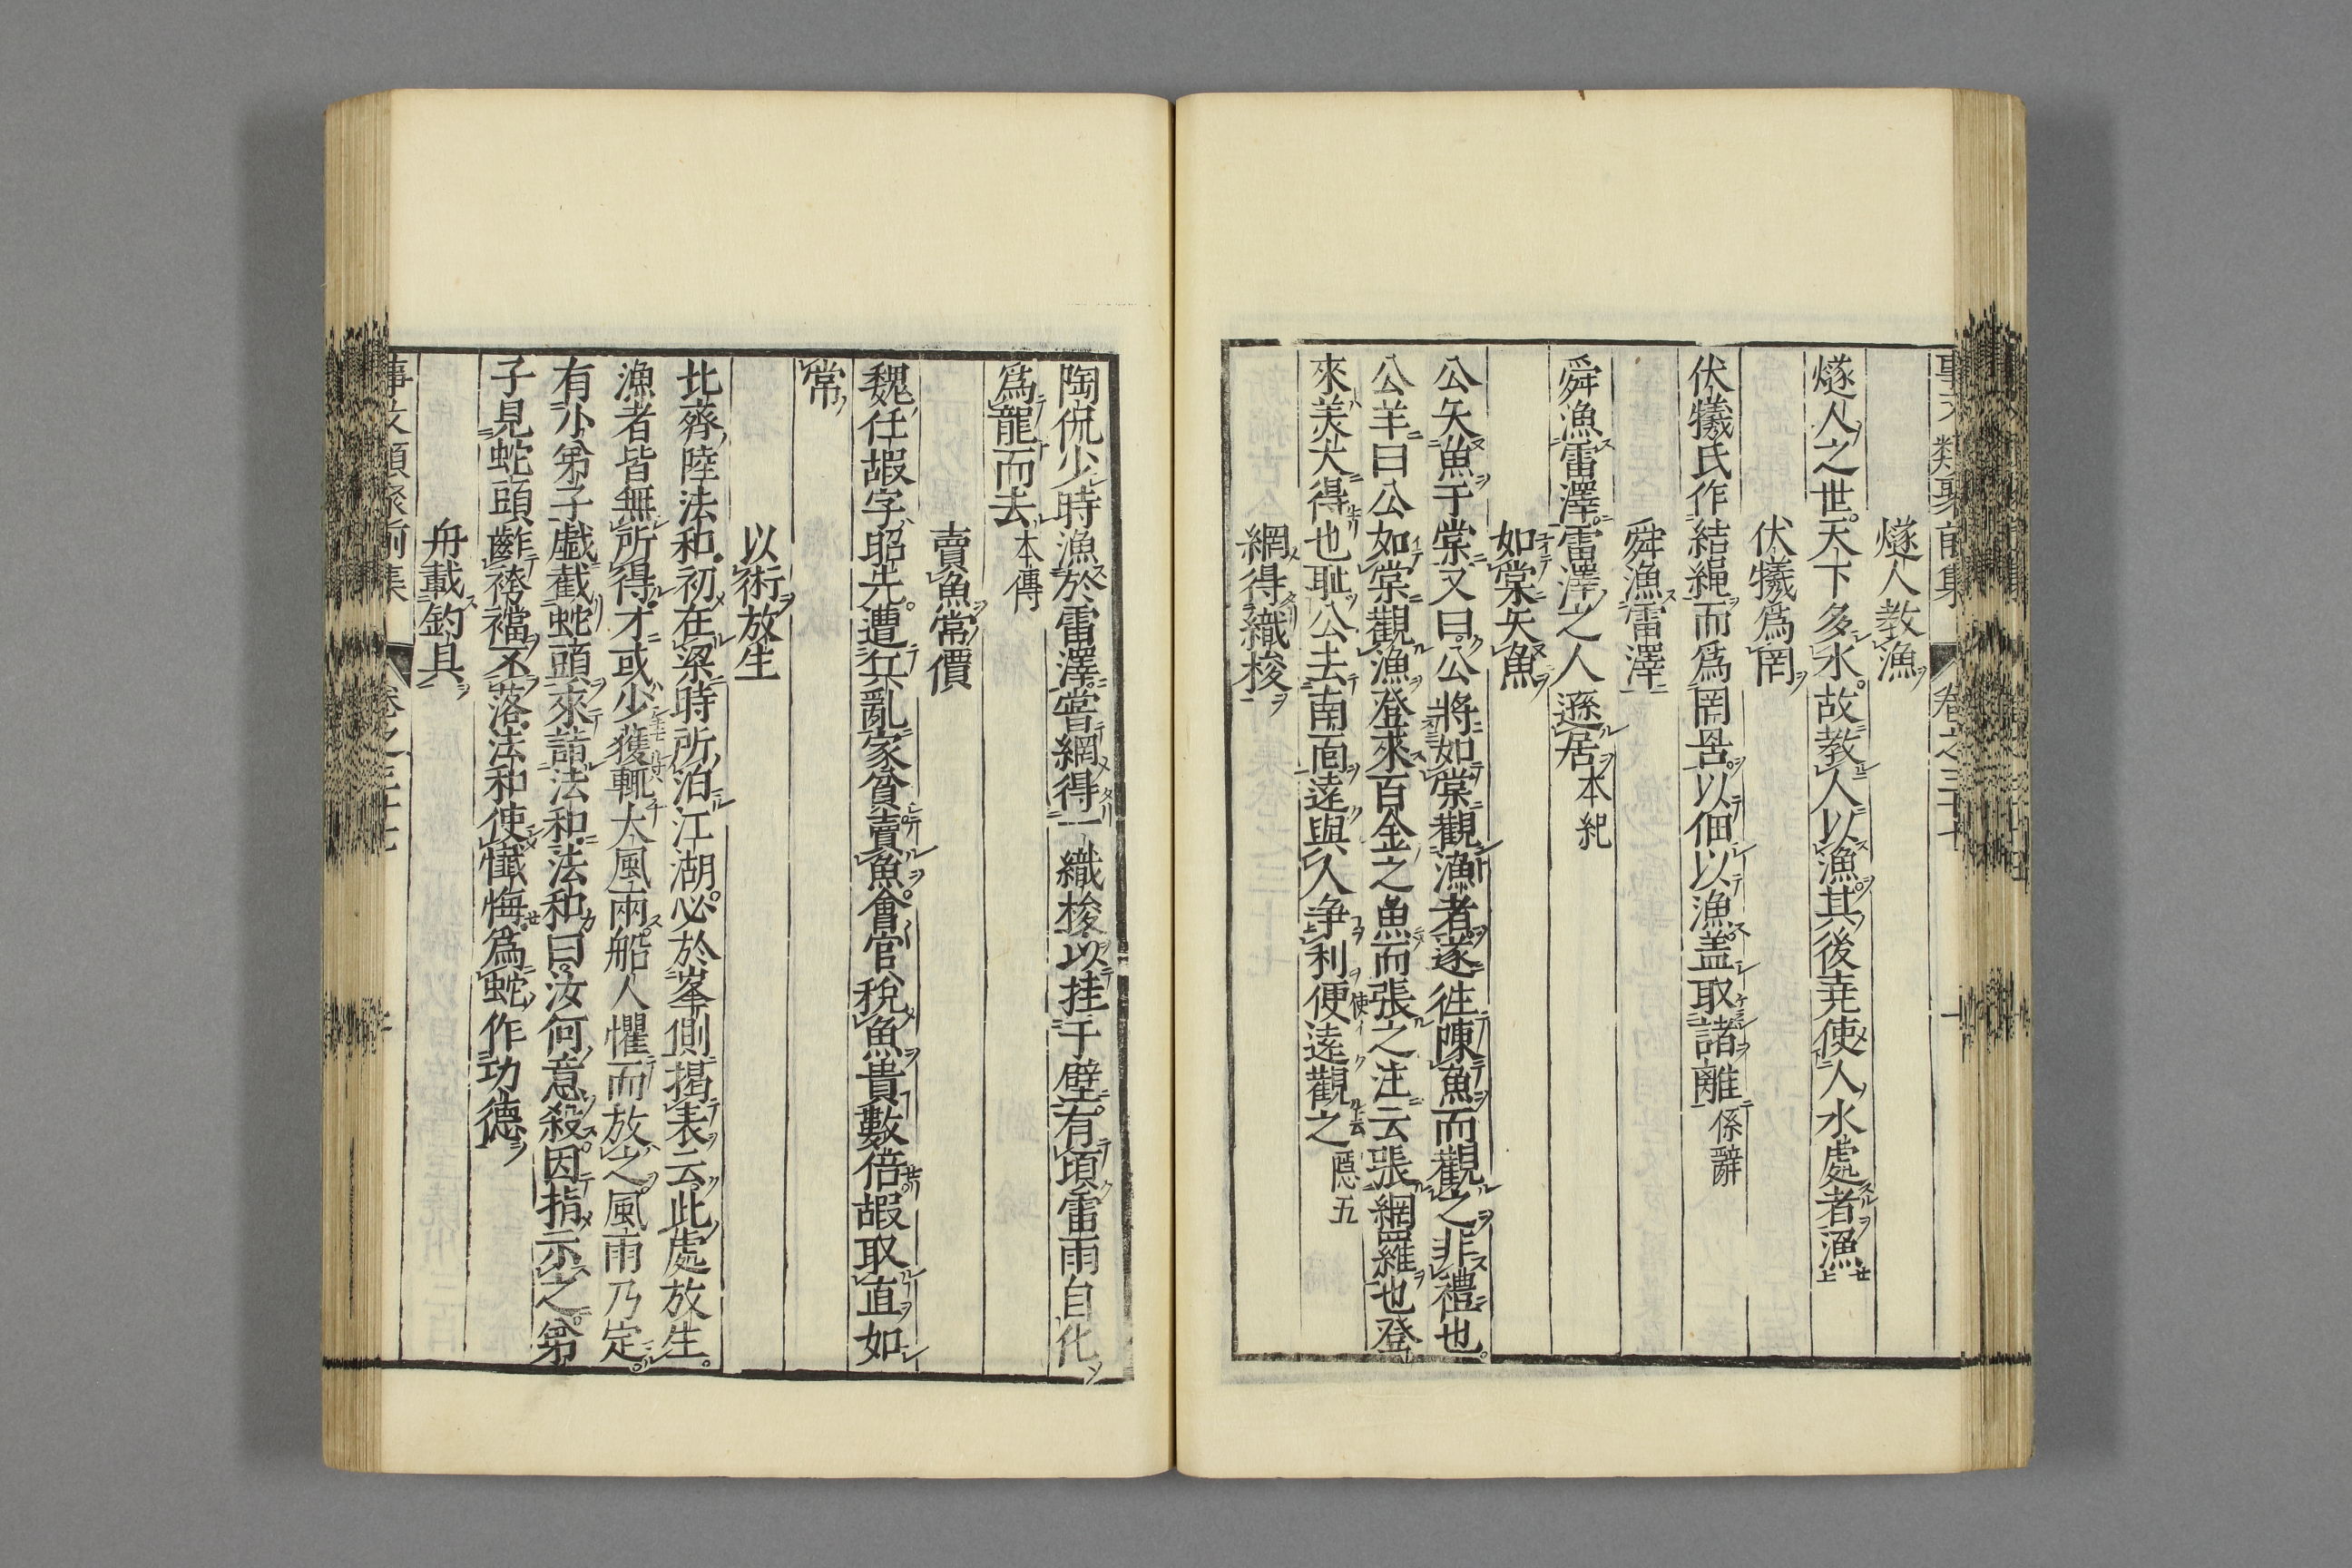 事文類聚前集 卷之三十七 一
燧人教漁
燧人之世天下多水故教人以漁其後堯使人水處者漁
伏犧爲罔
伏犧氏作結䋲而爲罔罟以佃以漁盖取諸離 係辭
舜漁雷澤
舜漁雷澤雷澤之人遜居 本紀
如棠矢魚
公矢魚于棠又曰公將如棠觀漁者遂徃陳魚而觀之非禮也
公羊曰公如棠觀漁登來百金之魚而張之注云張網罟維也登
來美大得也耻公去南面逺與人争利便逺觀之 隱五
網得織梭
陶侃少時漁於雷澤嘗網得一織梭以挂于壁有頃雷雨自化
爲龍而去 本傳
賣魚常價
魏任嘏字昭先遭兵亂家貧賣魚會官稅魚貴數倍嘏取直如
常
以術放生
北齊陸法和初在梁時所泊江湖必於峯側揭表云此處放生
漁者皆無所得才或少獲輒大風雨船人懼而放之風雨乃定
有小弟子戯截蛇頭來詣法和法和曰汝何意殺因指示之弟
子見蛇頭齚袴襠不落法和使懺悔爲蛇作功德
舟載釣具
事文類聚前集 卷之三十七